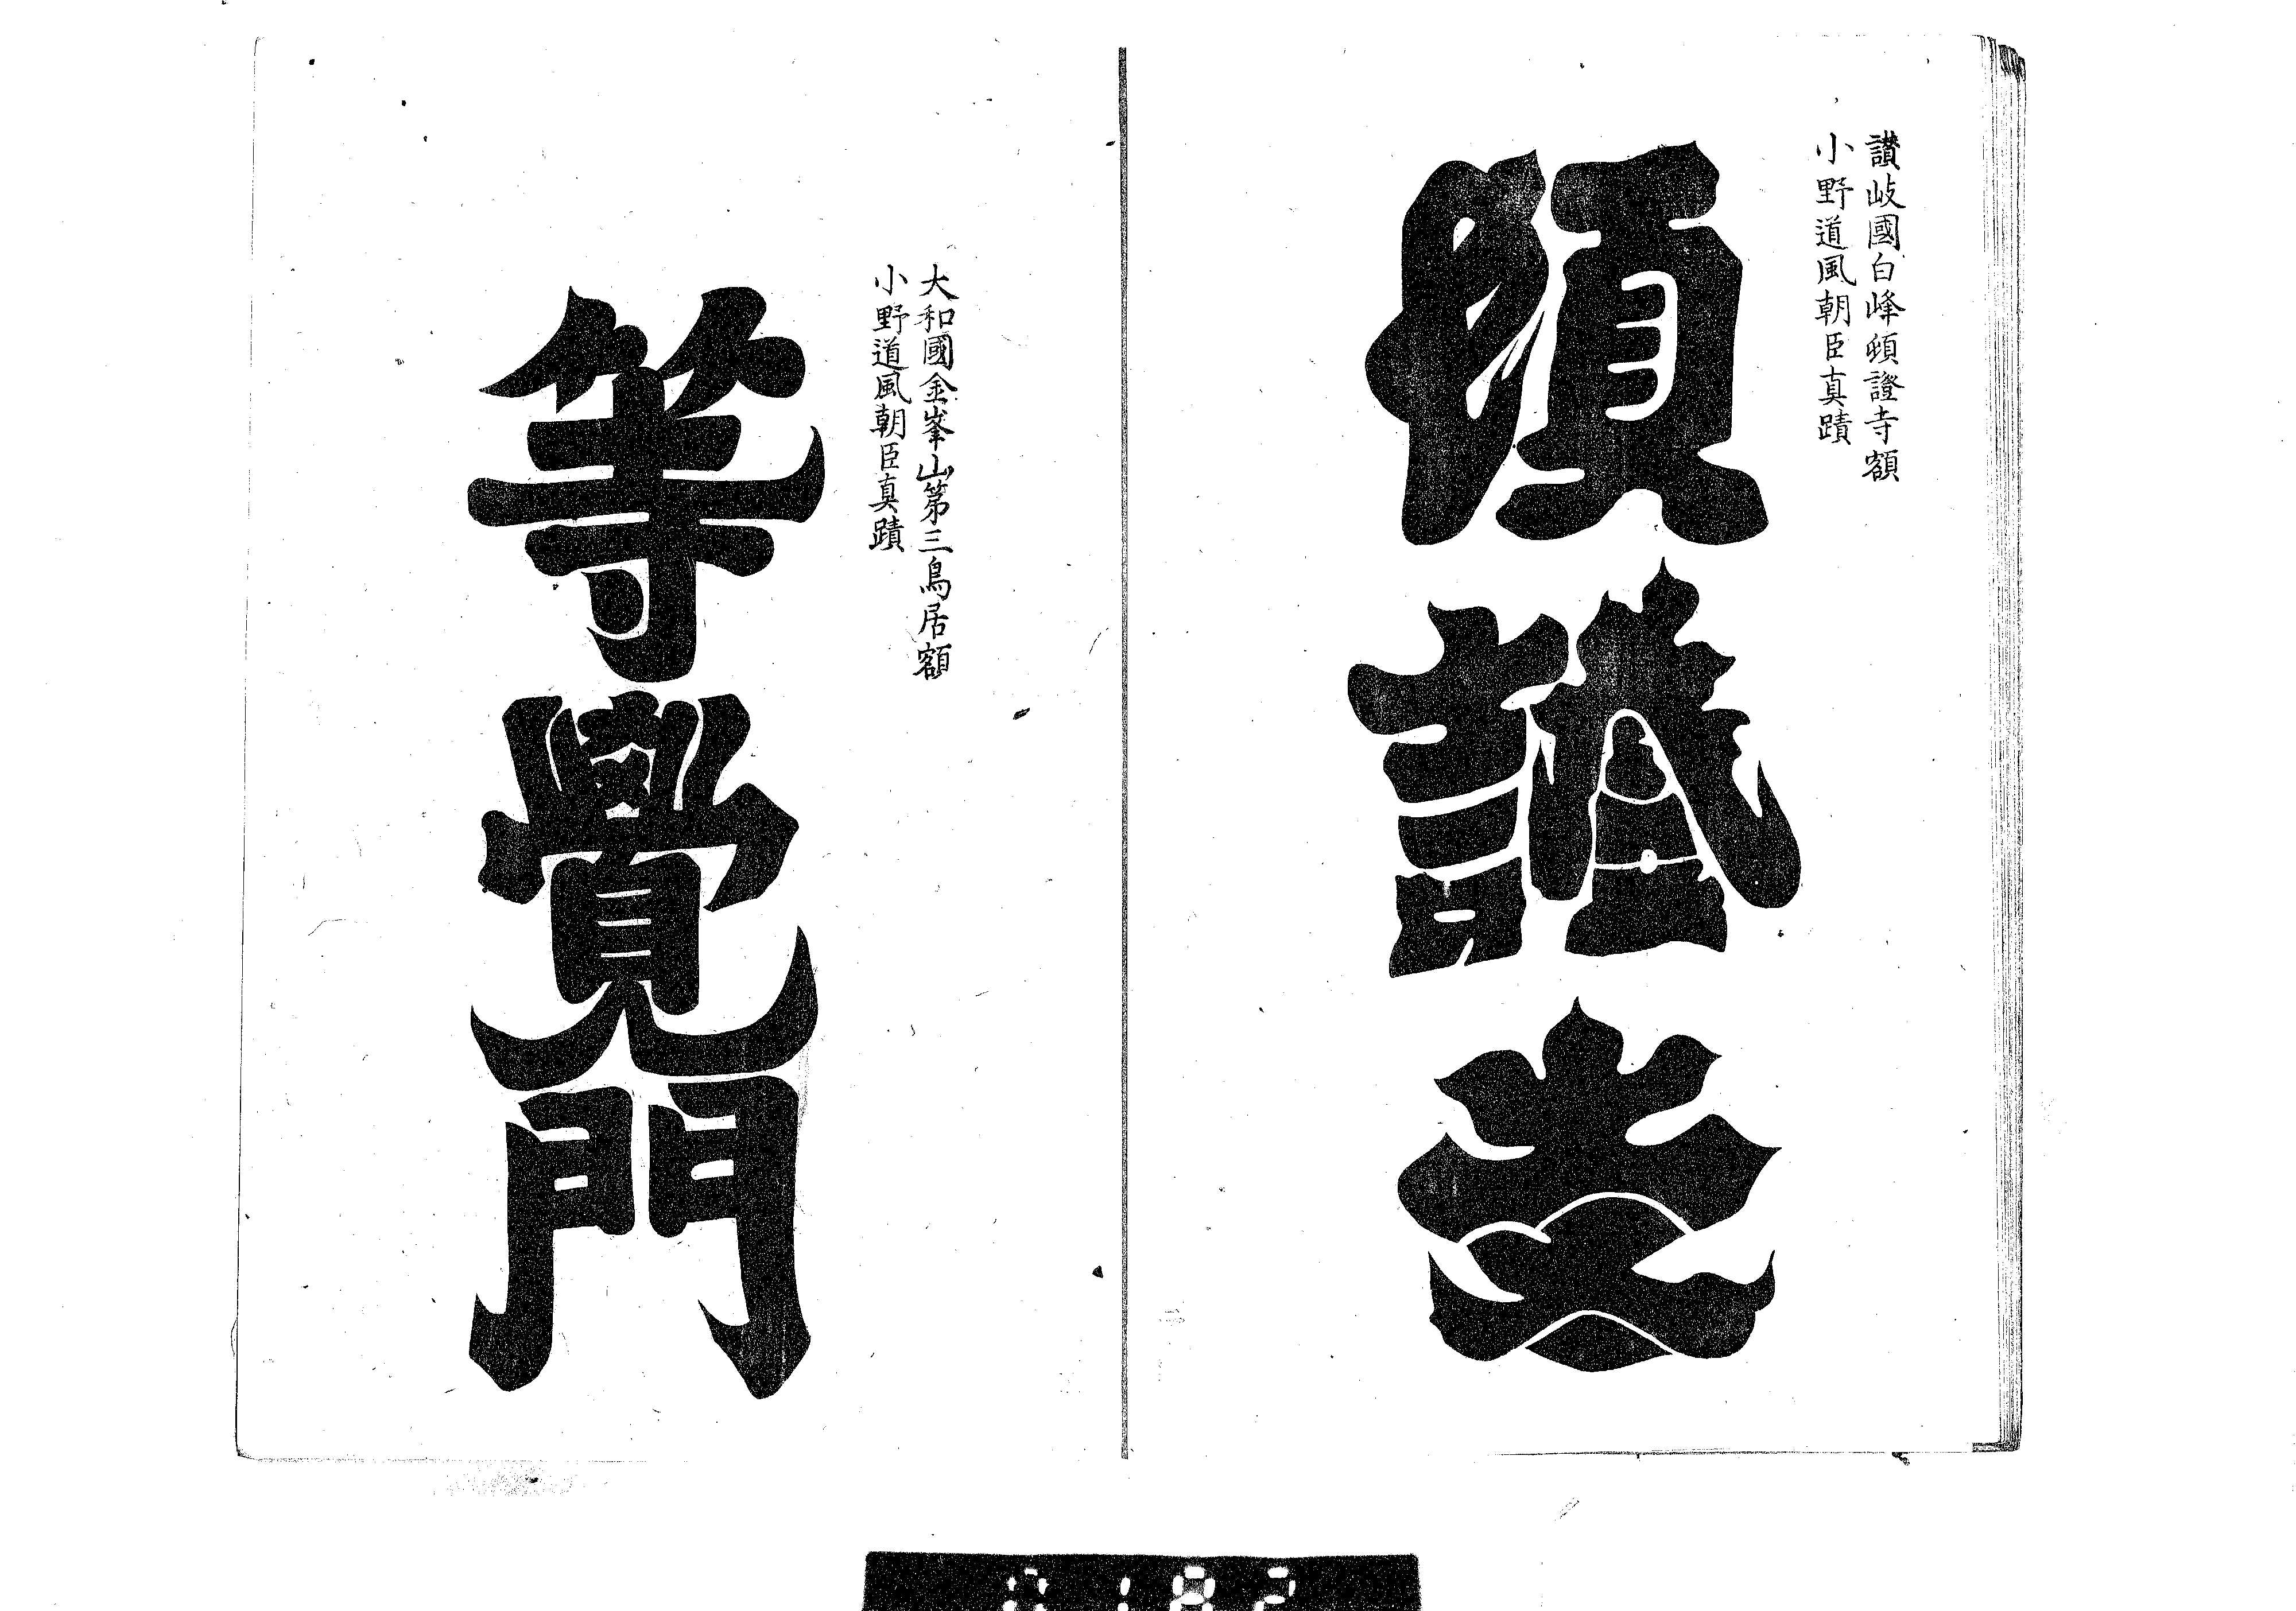 讃岐國白峰頓證寺額
小野道風朝臣真蹟
頓
證
寺
大和國金峯山第三鳥居額
小野道風朝臣真蹟
等
覺
門